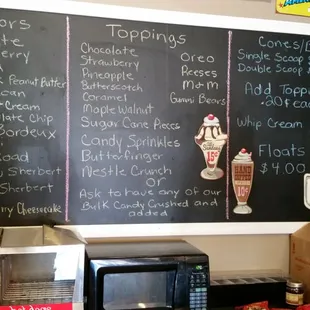 Toppings
Chocolate
Strawberry
Pineapple
Butterscotch
Caramel
Maple Walnut
Sugar Cane Pieces
Candy Sprinkles
Butterfinger
Nestle Crunch
or
Ask to have any of our
Bulk Candy Crushed and
added
Oreo
Reeses
M&M
Gummi Bears
15¢
ors
te
erry
k
Peanut Butter
can
-Cream
late Chip
Bordeaux
Road
Sherbert
Sherbert
rry Cheesecake
Cones/
Single Scoop
Double Scoop
Add Toppin
.20¢ ea
Whip Cream
Floats
$4.00
10¢
hot dogs